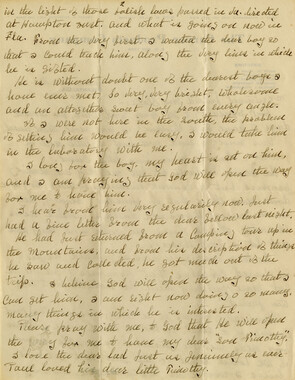 2
in the light of those foolish laws passed in Va. directed
at Hampton Inst. and what is going on now in
Fla. From the very first, I wanted the dear boy so
that I could train him, along the very lines in which
he is gifted.
He is without doubt one of the dearest boys I
have ever met. So very, very bright, wholesome
and an altogether sweet boy from every angle.
If I were not here in the South, the problem
of getting him would be easy, I would take him
in the laboratory with me.
I long for the boy. my heart is set on him,
and I am praying that God will open the way
for me to have him.
I hear from him very regularly now. Just
had a fine letter from the dear fellow last night.
He had just returned from a camping tour up in
the Mountains, and from his description of things
he saw and collected, he got much out of the
trip. I believe God will open the way so that I
can get him, I am right now doing so many,
many things in which he is interested.
Please pray with me, to God that He will open
the way for me to have my dear "God
I love the dear lad just as genuinely as ever
Paul loved his dear little Timothy.